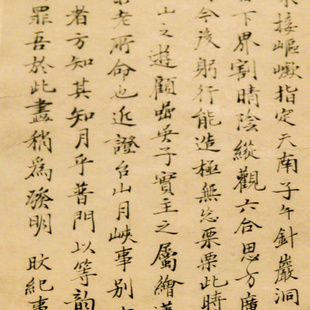 接嶇嶔指定天南子午針巖洞
下界割晴陰縱觀六合思方廣
今後躬行能造極無忘栗栗此時
山之遊顧曲吳子實主之屬繪
老所命也近證台山月峽事別
者方知其知月乎普門以等韵
罪吾於此盡稍為發明 肰紀事